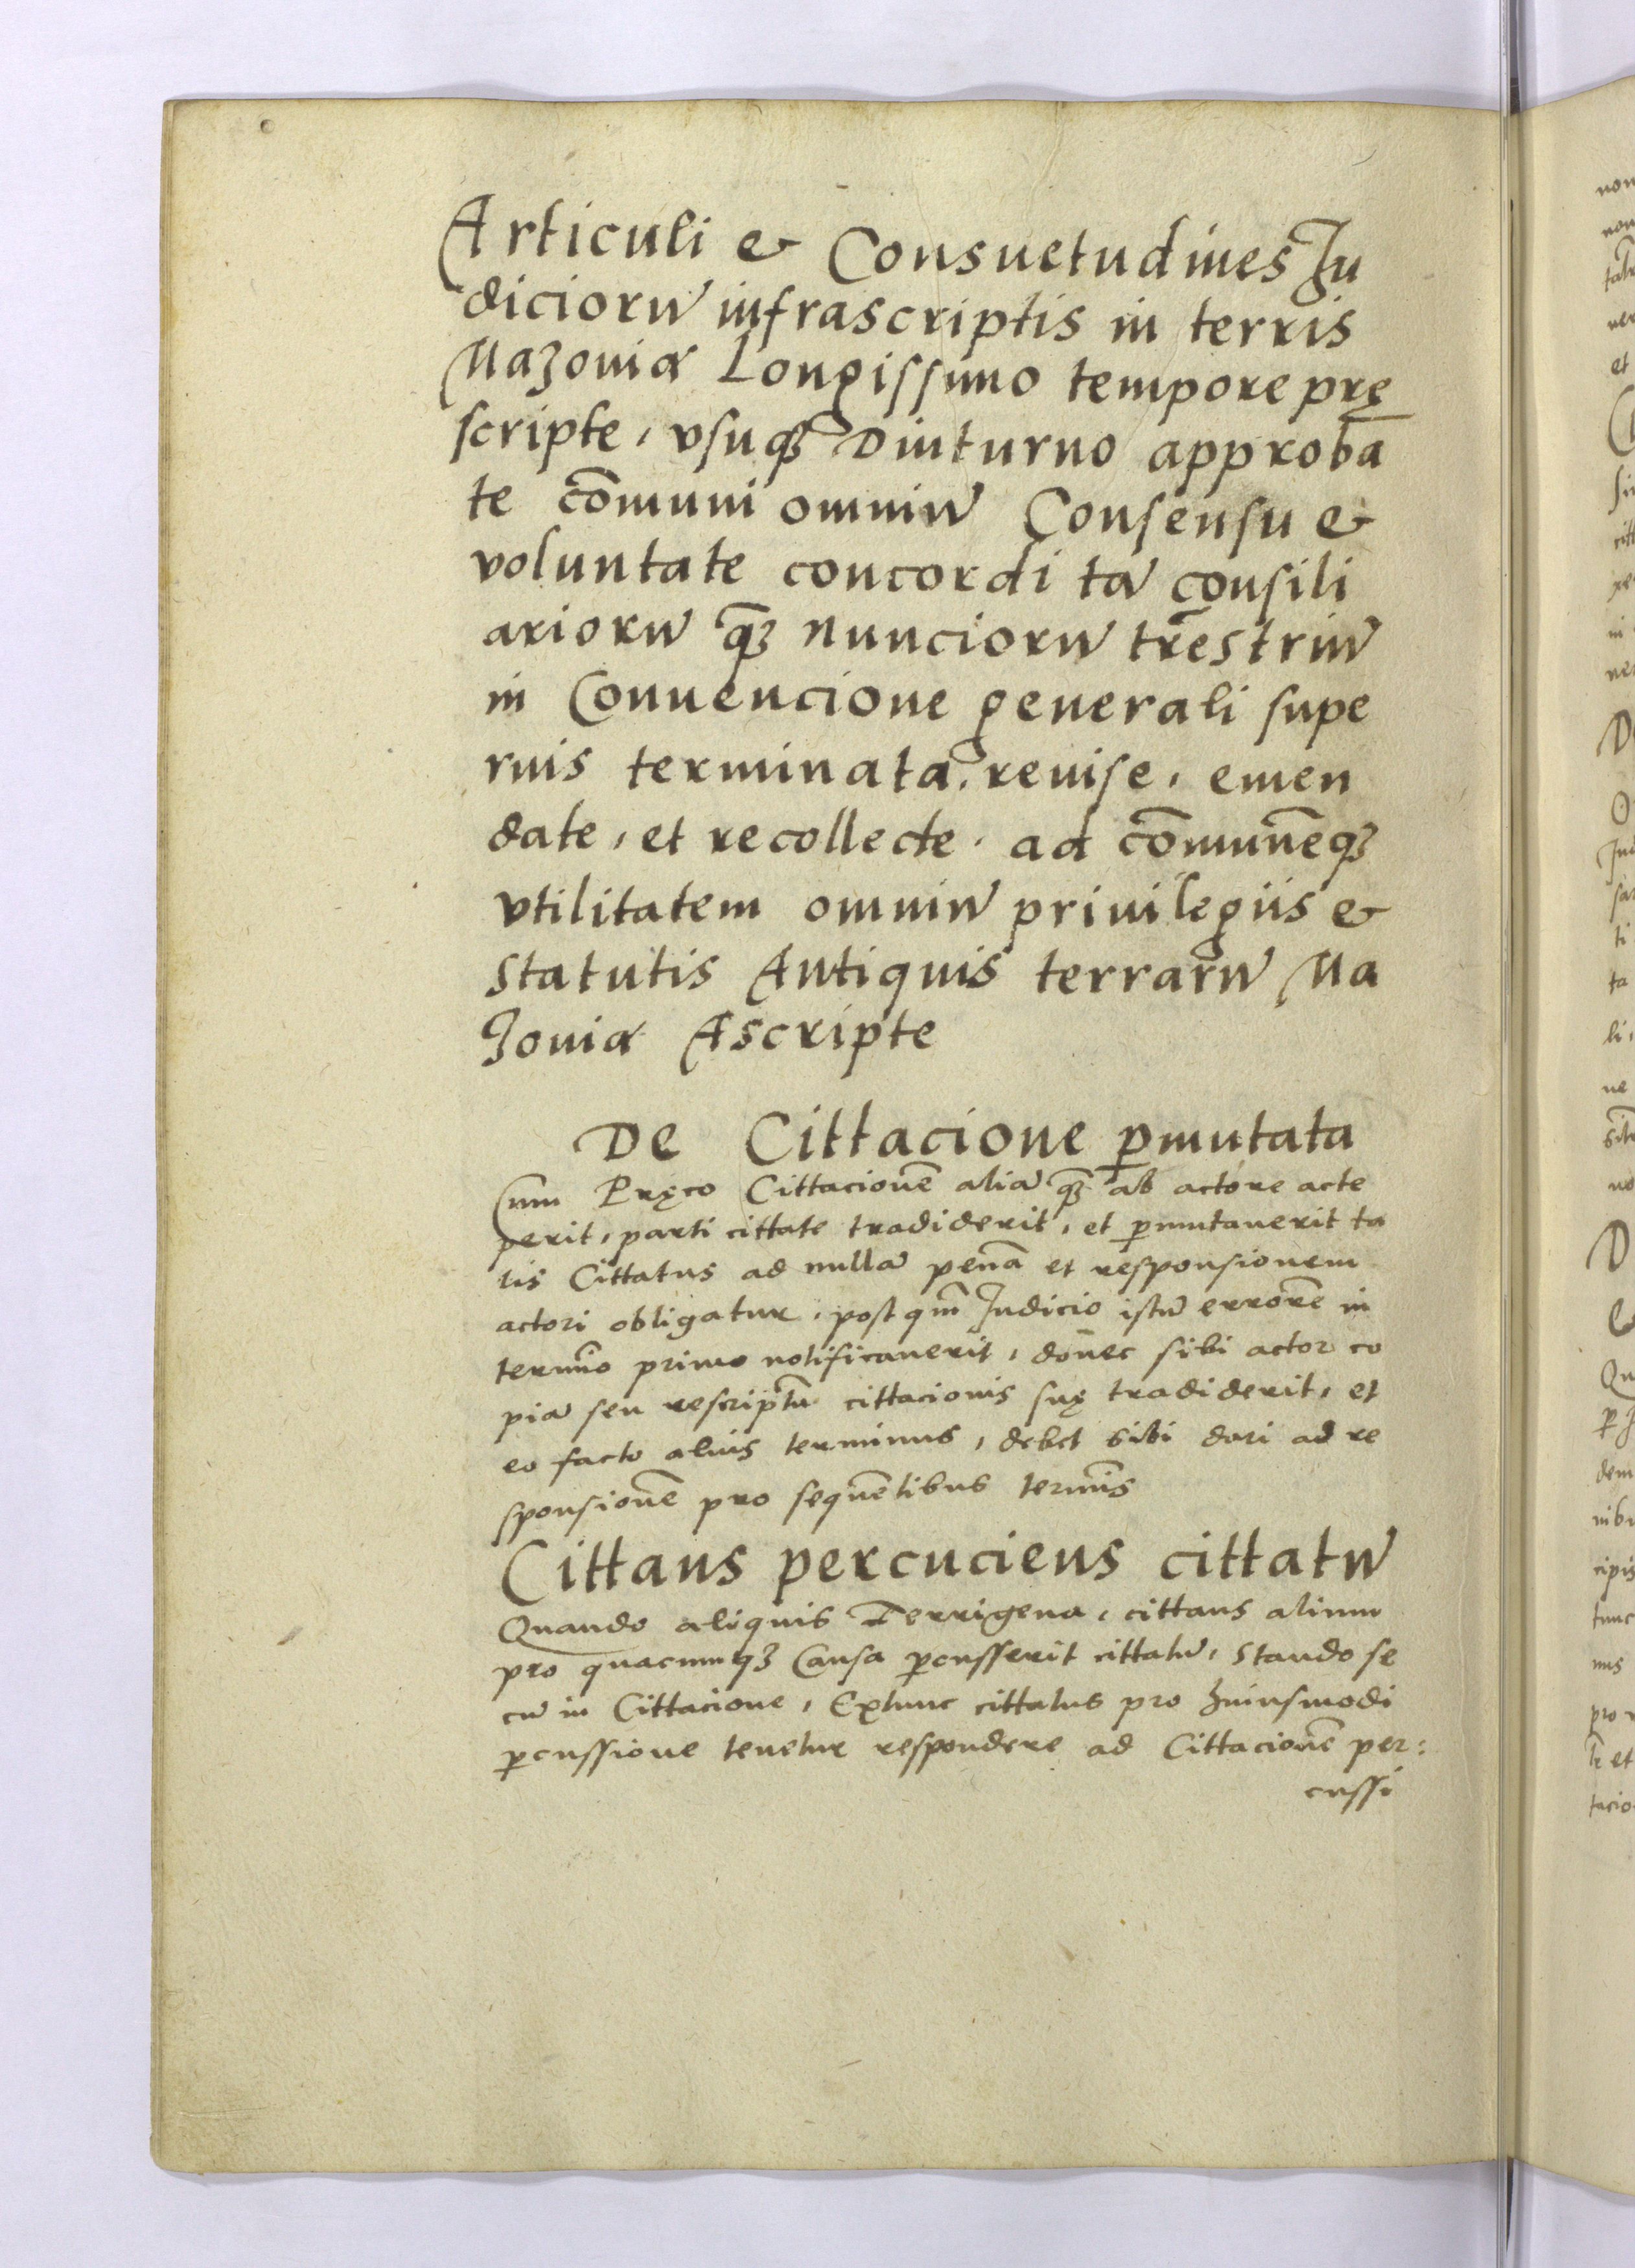 Articuli & Consuetudines Ju
diciorũ infrascriptis in terris
Mazoviæ Longissimo tempore prę
scripte, vsuqꝫ Diuturno approba
te cõmuni omniũ Consensu &
voluntate concordi tã consili
ariorũ qꝫ nunciorũ tr̃estriũ
in Conuencione generali supe
rius terminata. reuise, emen
date, et recollecte. ad cõmunẽqꝫ
vtilitatem omniũ priuilegiis &
statutis Antiquis terrarũ Ma
zoviæ Ascripte
De Cittacione ꝑmutata
Cum Pręco Cittacionẽ aliã qꝫ ab actore acte
perit, parti cittate tradiderit, et ꝑmutauerit ta
lis Cittatus ad nullã penã et responsionem
actori obligatur, post qm̃ Judicio istũ errorẽ in
termĩo primo notificauerit, donec sibi actor co
piã seu rescriptũ cittacionis suę tradiderit, et
eo facto alius terminus, debet sibi dari ad re
sponsionẽ pro sequẽtibus termĩs
Cittans percuciens cittatũ
Quando aliquis Terrigena, cittans alium
pro quacumqꝫ Causa ꝑcusserit cittatũ, stando se
cũ in Cittacione, Extunc cittatus pro huiusmodi
ꝑcussione tenetur respondere ad Cittacionẽ per:
cussi